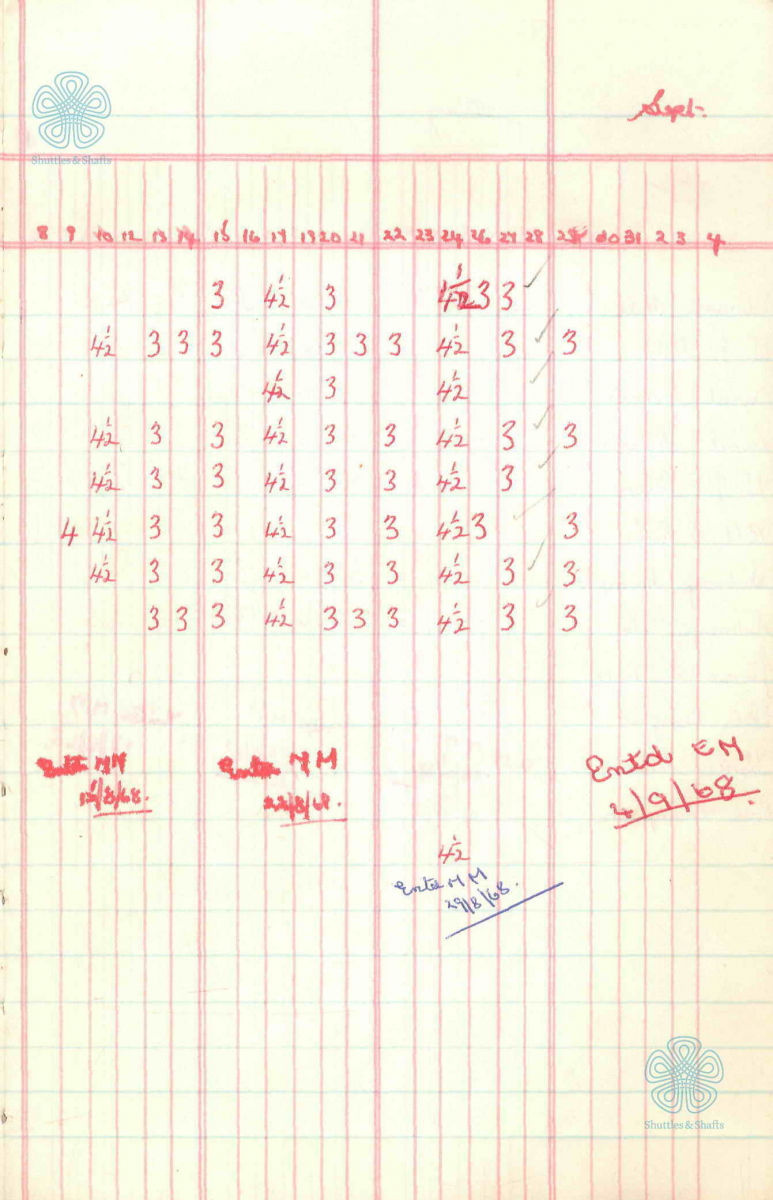 Sept.
Shuttles & Shafts
8 9 10 12 13 14 15 16 17 19 20 21 22 23 24 26 27 28 29 30 31 2 3 4
3 4½ 3 4½ 3 3 ✓
4½ 3 3 3 4½ 3 3 3 4½ 3 ✓ 3
4½ 3 4½ ✓
4½ 3 3 4½ 3 3 4½ 3 ✓ 3
4½ 3 3 4½ 3 3 4½ 3 ✓
4 4½ 3 3 4½ 3 3 4½ 3 ✓ 3
4½ 3 3 4½ 3 3 4½ 3 ✓ 3
3 3 3 4½ 3 3 3 4½ 3 ✓ 3
MM MM Entd EM
/8/68. 22/8/68. 4/9/68.
4½
Entd MM
29/8/68.
Shuttles & Shafts